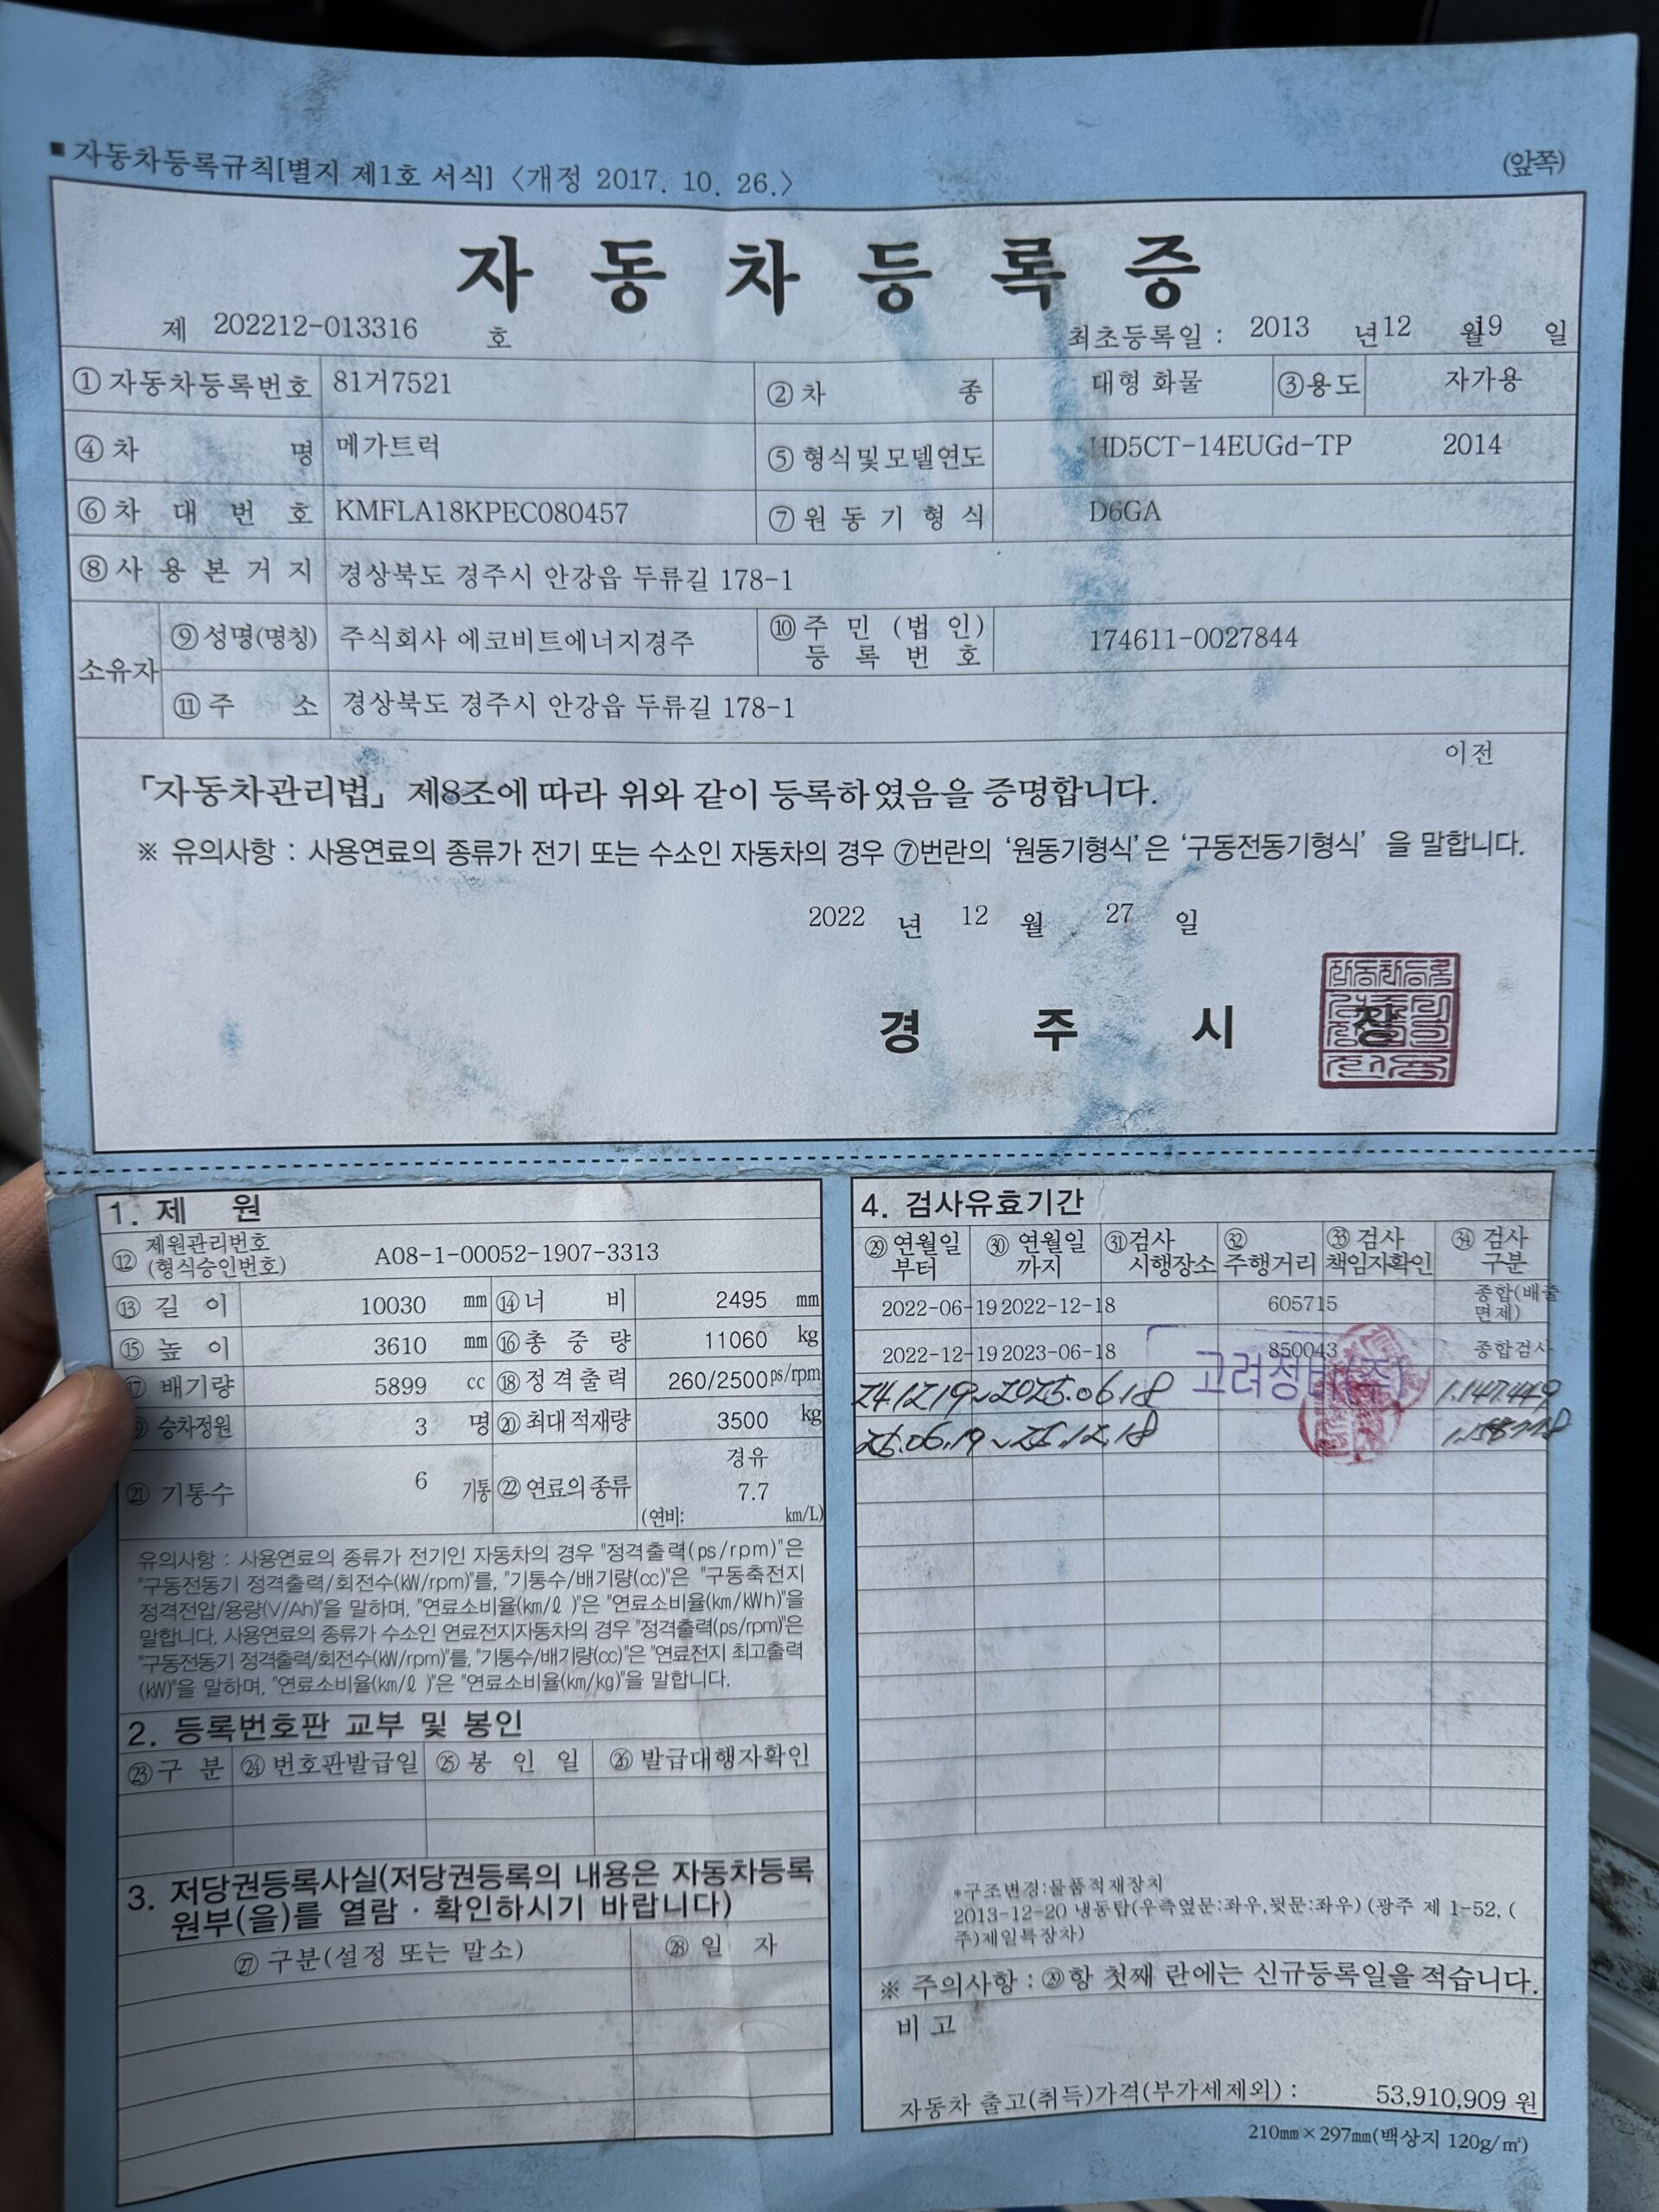 ■ 자동차등록규칙[별지 제1호 서식] 〈개정 2017. 10. 26.〉 (앞쪽)
자 동 차 등 록 증
제 202212-013316 호 최초등록일 : 2013 년 12 월 19 일
① 자동차등록번호 81거7521 ② 차 종 대형 화물 ③ 용도 자가용
④ 차 명 메가트럭 ⑤ 형식 및 모델연도 HD5CT-14EUGd-TP 2014
⑥ 차 대 번 호 KMFLA18KPEC080457 ⑦ 원 동 기 형 식 D6GA
⑧ 사 용 본 거 지 경상북도 경주시 안강읍 두류길 178-1
소유자 ⑨ 성명(명칭) 주식회사 에코비트에너지경주 ⑩ 주 민 (법 인) 등 록 번 호 174611-0027844
⑪ 주 소 경상북도 경주시 안강읍 두류길 178-1
이전
「자동차관리법」 제8조에 따라 위와 같이 등록하였음을 증명합니다.
※ 유의사항 : 사용연료의 종류가 전기 또는 수소인 자동차의 경우 ⑦번란의 '원동기형식'은 '구동전동기형식' 을 말합니다.
2022 년 12 월 27 일
경 주 시 장
1. 제 원
⑫ 제원관리번호 (형식승인번호) A08-1-00052-1907-3313
⑬ 길 이 10030 mm ⑭ 너 비 2495 mm
⑮ 높 이 3610 mm ⑯ 총 중 량 11060 kg
⑰ 배기량 5899 cc ⑱ 정격출력 260/2500 ps/rpm
⑲ 승차정원 3 명 ⑳ 최대적재량 3500 kg
㉑ 기통수 6 기통 ㉒ 연료의종류 경유
7.7
(연비: km/L)
유의사항 : 사용연료의 종류가 전기인 자동차의 경우 "정격출력(ps/rpm)"은
"구동전동기 정격출력/회전수(kW/rpm)"를, "기통수/배기량(cc)"은 "구동축전지
정격전압/용량(V/Ah)"을 말하며, "연료소비율(km/ℓ )"은 "연료소비율(km/kWh)"을
말합니다. 사용연료의 종류가 수소인 연료전지자동차의 경우 "정격출력(ps/rpm)"은
"구동전동기 정격출력/회전수(kW/rpm)"를, "기통수/배기량(cc)"은 "연료전지 최고출력
(kW)"을 말하며, "연료소비율(km/ℓ )"은 "연료소비율(km/kg)"을 말합니다.
2. 등록번호판 교부 및 봉인
㉓ 구 분 ㉔ 번호판발급일 ㉕ 봉 인 일 ㉖ 발급대행자확인
3. 저당권등록사실(저당권등록의 내용은 자동차등록
원부(을)를 열람 · 확인하시기 바랍니다)
㉗ 구분(설정 또는 말소) ㉘ 일 자
4. 검사유효기간
㉙ 연월일 부터 ㉚ 연월일 까지 ㉛ 검사 시행장소 ㉜ 주행거리 ㉝ 검사 책임자확인 ㉞ 검사 구분
2022-06-19 2022-12-18 605715 종합(배출 면제)
2022-12-19 2023-06-18 850043 종합검사
24.12.19~2025.06.18 1.147.449
25.06.19~25.12.18
*구조변경:물품적재장치
2013-12-20 냉동탑(우측옆문:좌우,뒷문:좌우) (광주 제 1-52, (
주)제일특장차)
※ 주의사항 : ㉙항 첫째 란에는 신규등록일을 적습니다.
비 고
자동차 출고(취득)가격(부가세제외) : 53,910,909 원
210㎜×297㎜(백상지 120g/㎡)